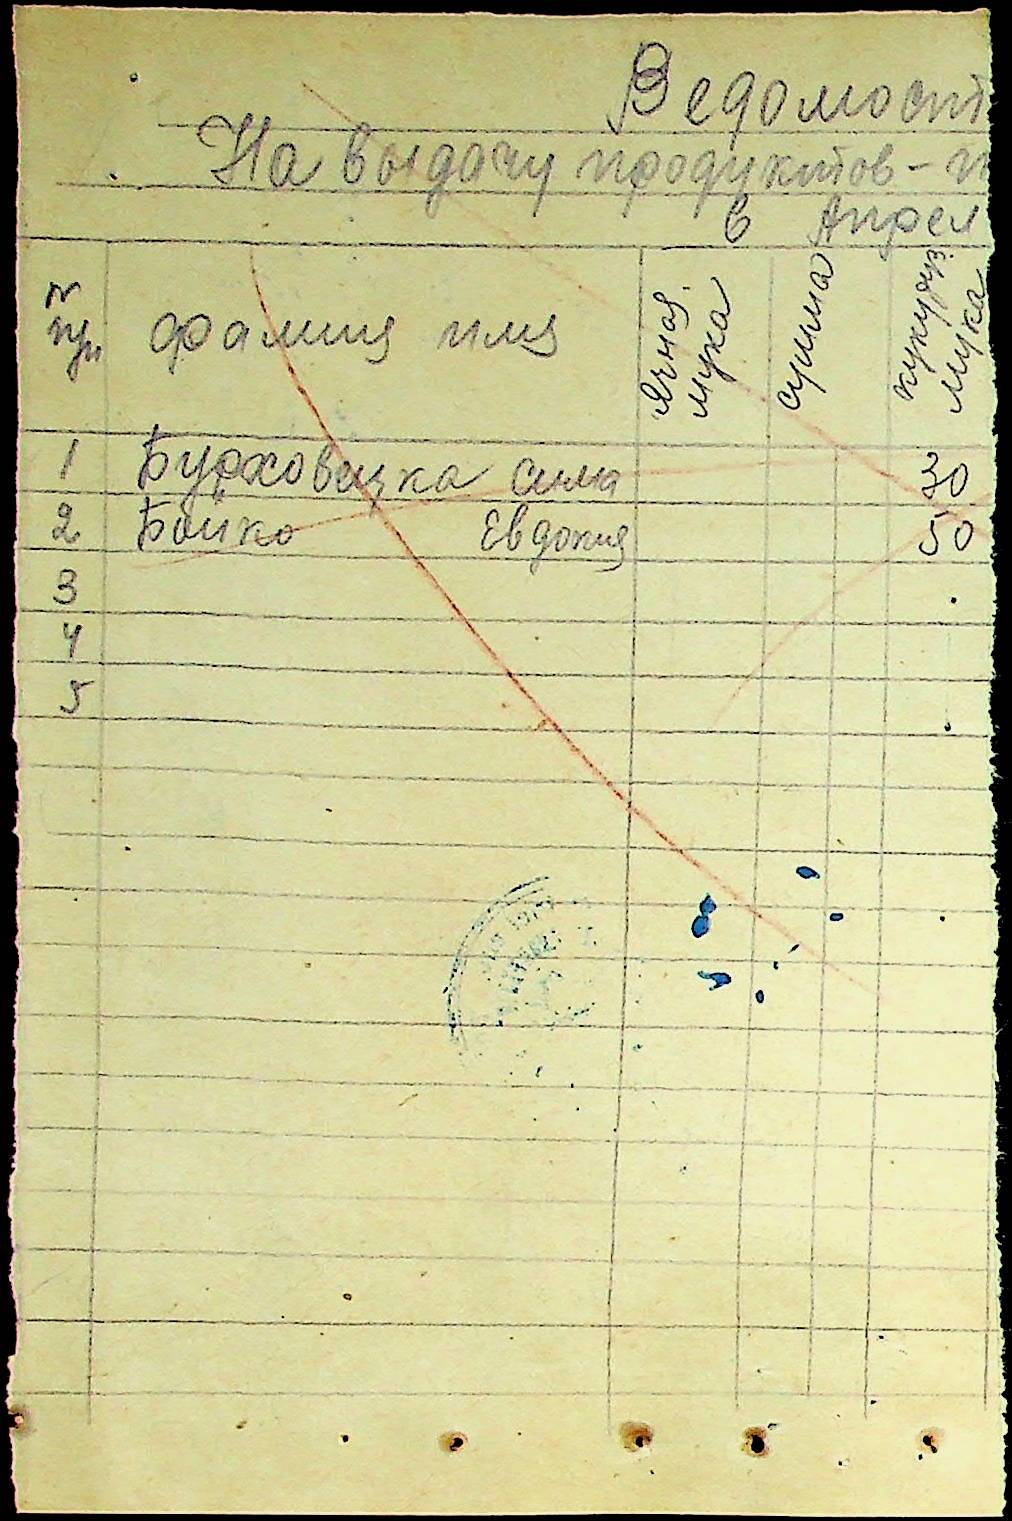 Ведомост
На выдачу продуктов - п
в Апрел
№ пуп фамилия имя Ячная мука сумма кукуруз. мука
1 Бурховецка Сима 30
2 Бойко Евдокия 50
3
4
5